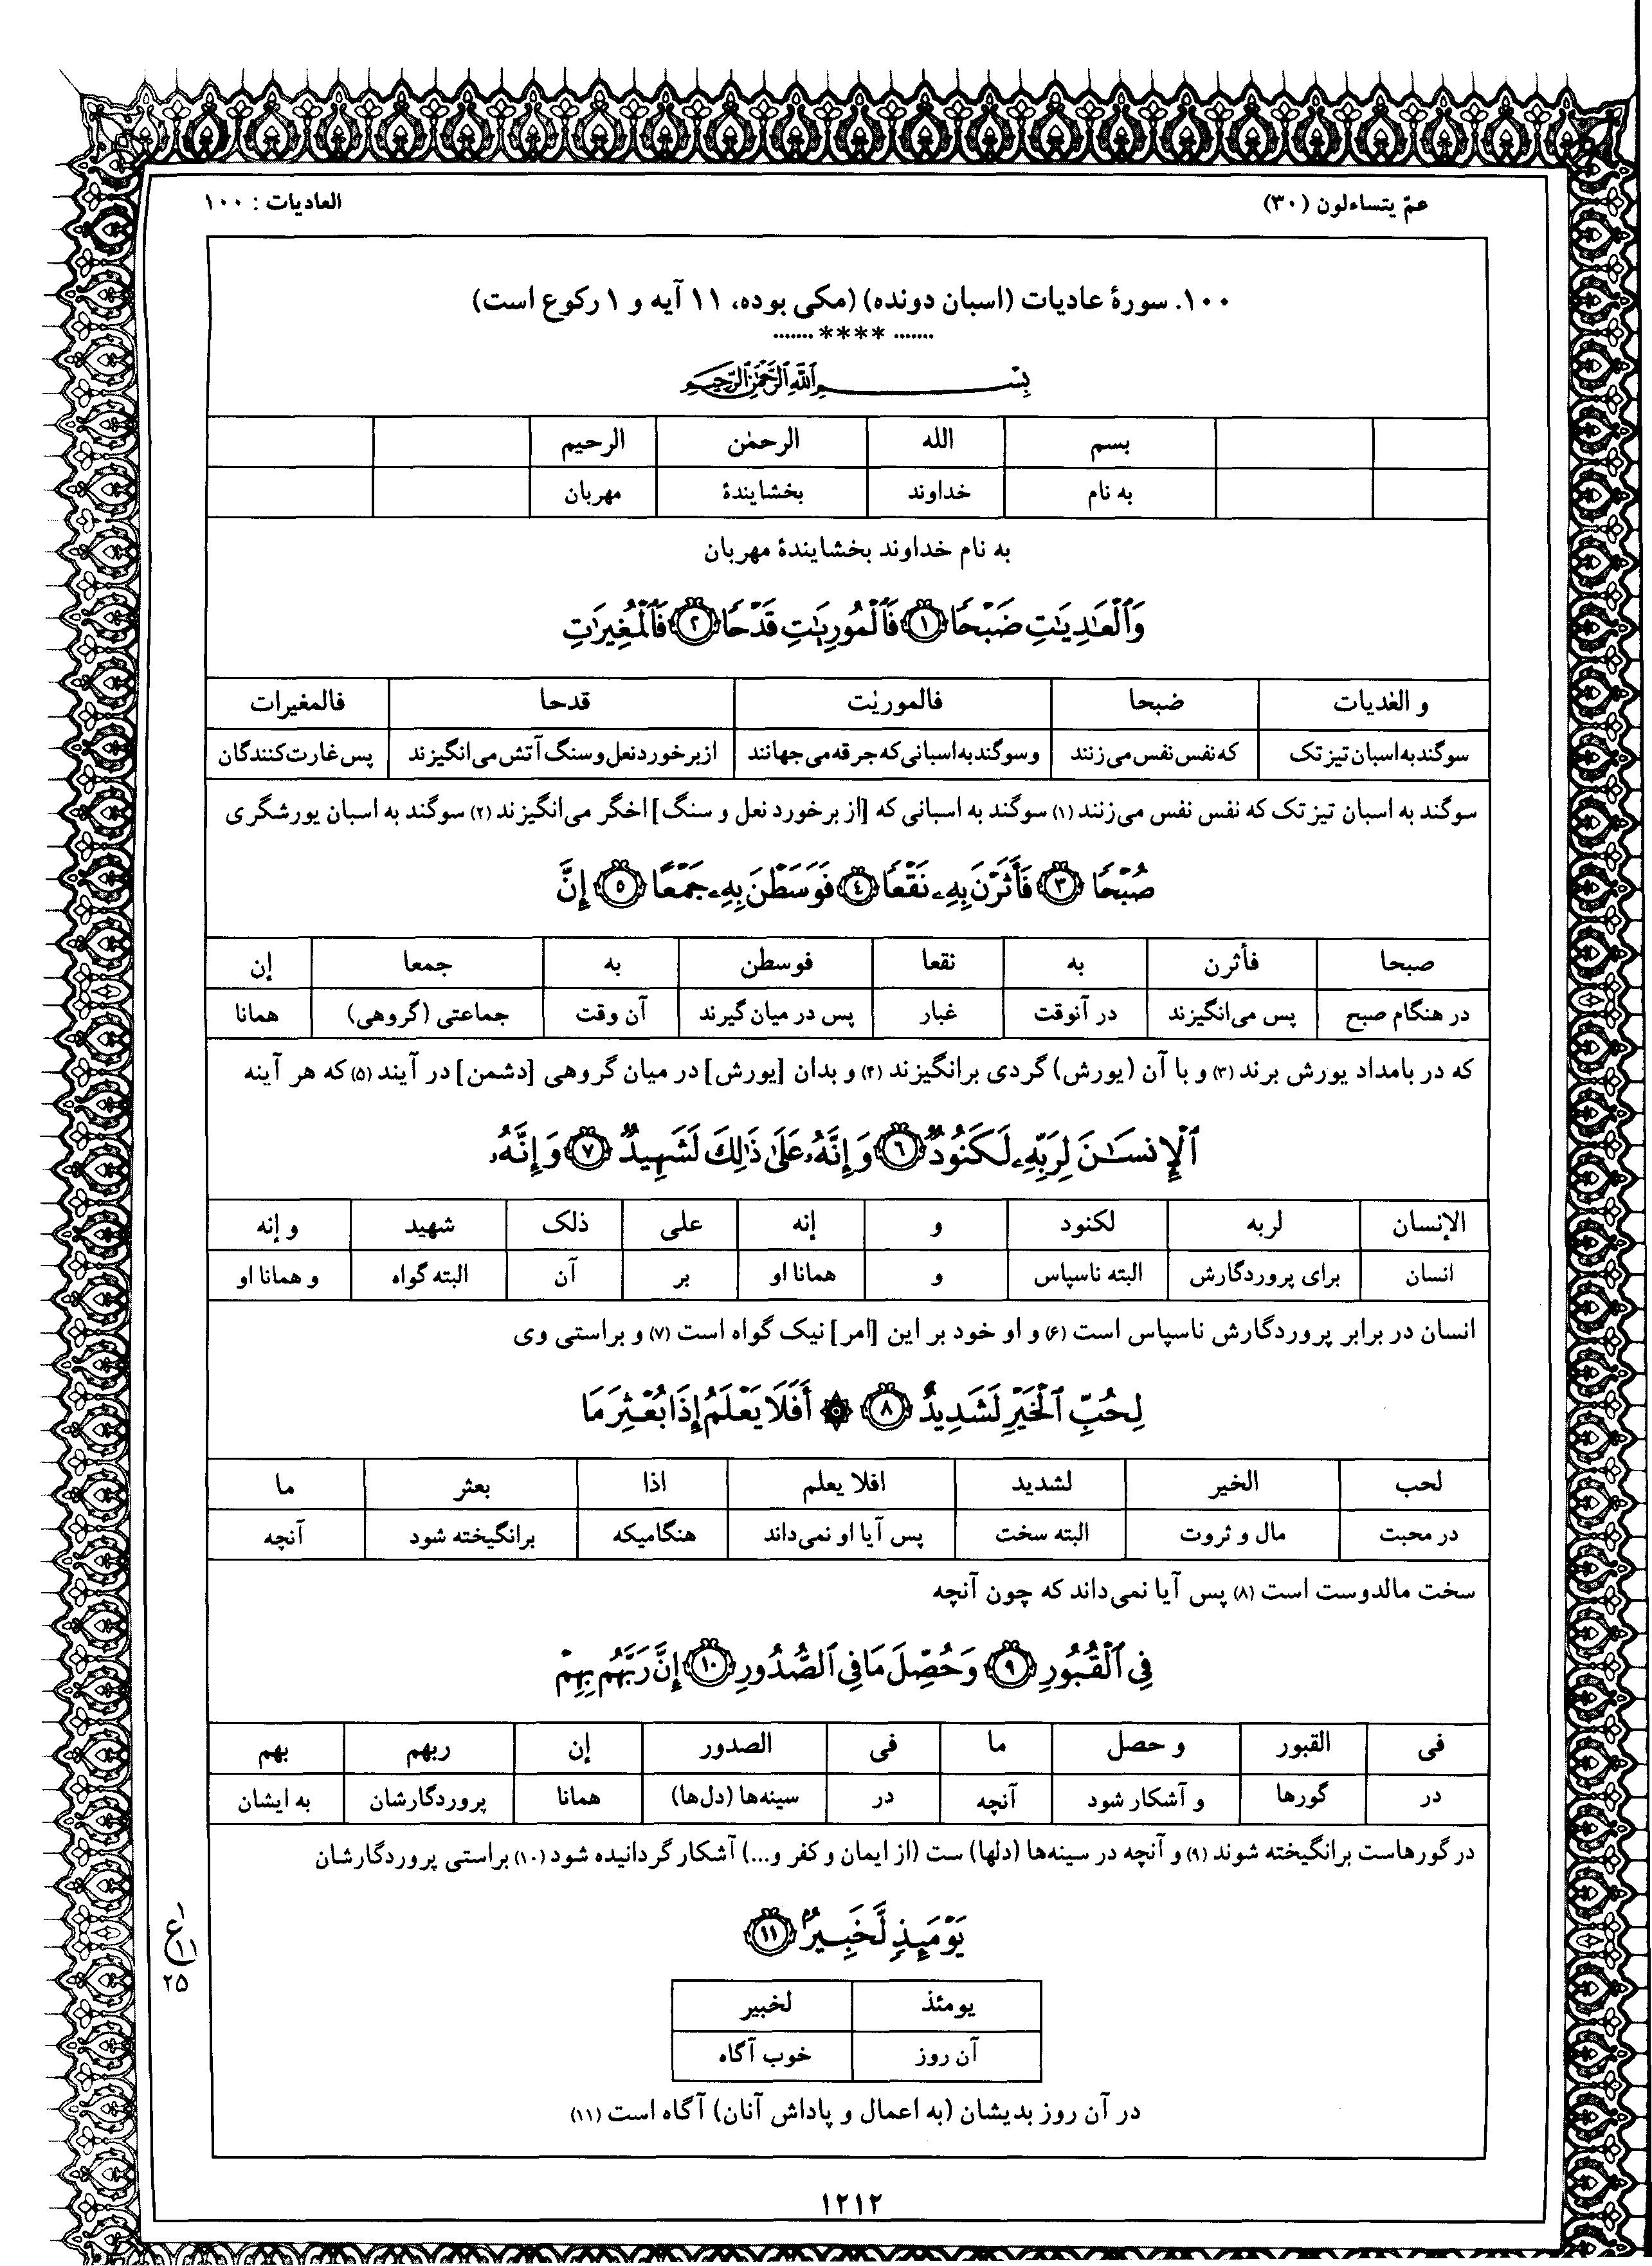 عمّ یتساءلون (۳۰) العادیات : ۱۰۰
۱۰۰. سورهٔ عادیات (اسبان دونده) (مکی بوده، ۱۱ آیه و ۱ رکوع است)
....... **** .......
بِسْمِ اللَّهِ الرَّحْمَٰنِ الرَّحِيمِ
بسم الله الرحمٰن الرحیم
به نام خداوند بخشایندهٔ مهربان
به نام خداوند بخشایندهٔ مهربان
وَٱلْعَٰدِيَٰتِ ضَبْحًا ١ فَٱلْمُورِيَٰتِ قَدْحًا ٢ فَٱلْمُغِيرَٰتِ
و العٰدیات ضبحا فالموریٰت قدحا فالمغیرات
سوگند به اسبان تیزتک که نفس نفس می‌زنند و سوگند به اسبانی که جرقه می‌جهانند از برخورد نعل و سنگ آتش می‌انگیزند پس غارت‌کنندگان
سوگند به اسبان تیزتک که نفس نفس می‌زنند (۱) سوگند به اسبانی که [از برخورد نعل و سنگ] اخگر می‌انگیزند (۲) سوگند به اسبان یورشگری
صُبْحًا ٣ فَأَثَرْنَ بِهِۦ نَقْعًا ٤ فَوَسَطْنَ بِهِۦ جَمْعًا ٥ إِنَّ
صبحا فأثرن به نقعا فوسطن به جمعا إن
در هنگام صبح پس می‌انگیزند در آنوقت غبار پس در میان گیرند آن وقت جماعتی (گروهی) همانا
که در بامداد یورش برند (۳) و با آن (یورش) گردی برانگیزند (۴) و بدان [یورش] در میان گروهی [دشمن] در آیند (۵) که هر آینه
ٱلْإِنسَٰنَ لِرَبِّهِۦ لَكَنُودٌ ٦ وَإِنَّهُۥ عَلَىٰ ذَٰلِكَ لَشَهِيدٌ ٧ وَإِنَّهُۥ
الإنسان لربه لکنود و إنه علی ذلک شهید و إنه
انسان برای پروردگارش البته ناسپاس و همانا او بر آن البته گواه و همانا او
انسان در برابر پروردگارش ناسپاس است (۶) و او خود بر این [امر] نیک گواه است (۷) و براستی وی
لِحُبِّ ٱلْخَيْرِ لَشَدِيدٌ ٨ ۞ أَفَلَا يَعْلَمُ إِذَا بُعْثِرَ مَا
لحب الخیر لشدید افلا یعلم اذا بعثر ما
در محبت مال و ثروت البته سخت پس آیا او نمی‌داند هنگامیکه برانگیخته شود آنچه
سخت مالدوست است (۸) پس آیا نمی‌داند که چون آنچه
فِى ٱلْقُبُورِ ٩ وَحُصِّلَ مَا فِى ٱلصُّدُورِ ١٠ إِنَّ رَبَّهُم بِهِمْ
فی القبور و حصل ما فی الصدور إن ربهم بهم
در گورها و آشکار شود آنچه در سینه‌ها (دل‌ها) همانا پروردگارشان به ایشان
در گورهاست برانگیخته شوند (۹) و آنچه در سینه‌ها (دلها) ست (از ایمان و کفر و...) آشکار گردانیده شود (۱۰) براستی پروردگارشان
يَوْمَئِذٍ لَّخَبِيرٌۢ ١١
۱
ع
۱۱
۲۵
یومئذ لخبیر
آن روز خوب آگاه
در آن روز بدیشان (به اعمال و پاداش آنان) آگاه است (۱۱)
۱۲۱۲